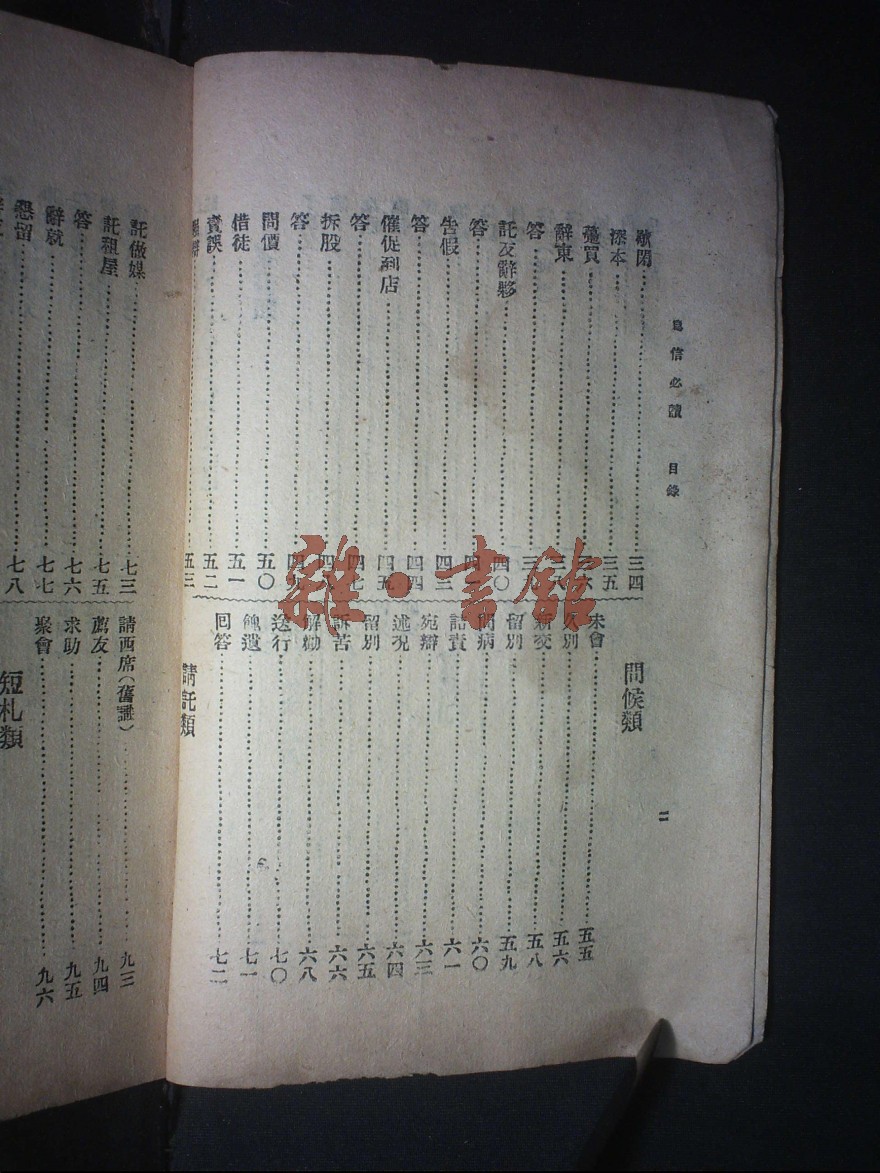 信必讀 目錄
二
歇閑 三四
添本 三五
躉買 三六
辭東
答 三
託友辭夥 四〇
答
告假 四三
答 四四
催促到店 四五
答 四七
拆股 四八
答 四九
問價 五〇
借徒 五一
責誤 五二
五三
問候類
未會 五五
久別 五六
五八
留別 五九
問病 六〇
詰責 六一
宛辯 六三
述况 六四
留別 六五
訴苦 六六
解勸 六八
送行 七〇
餽遺 七一
回答 七二
請託類
託做媒 七三
託租屋 七五
答 七六
辭就 七七
懇留 七八
請西席(舊誼) 九三
薦友 九四
求助 九五
聚會 九六
短札類
雜·書館